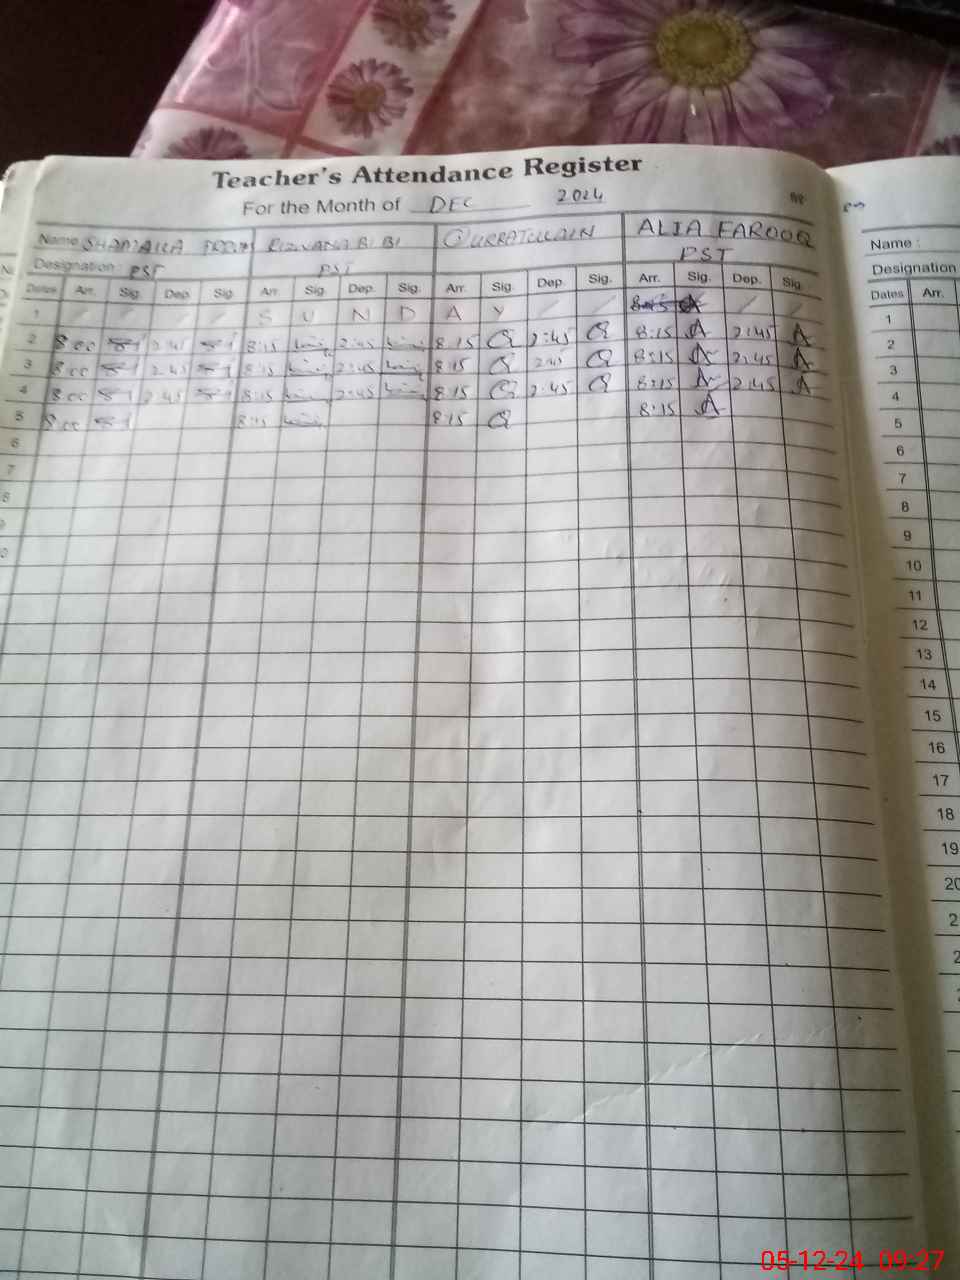 Teacher's Attendance Register
For the Month of DEC 2024
Name SHAMAILA RIZWANA BIBI QURRATULAIN ALIA FAROOQ Name :
Designation : PST PST PST Designation
Dates Arr. Sig. Dep. Sig. Arr. Sig. Dep. Sig. Arr. Sig. Dep. Sig. Arr. Sig. Dep. Sig. Dates Arr.
1 S U N D A Y 1
2 8:00 2:45 8:15 2:45 8:15 Q 2:45 Q 8:15 A 2:45 A 2
3 8:00 2:45 8:15 2:45 8:15 Q 2:45 Q 8:15 A 2:45 A 3
4 8:00 2:45 8:15 2:45 8:15 Q 2:45 Q 8:15 A 2:45 A 4
5 8:00 8:15 8:15 Q 8:15 A 5
6 6
7 7
8 8
9
10
11
12
13
14
15
16
17
18
19
20
05-12-24 09:27